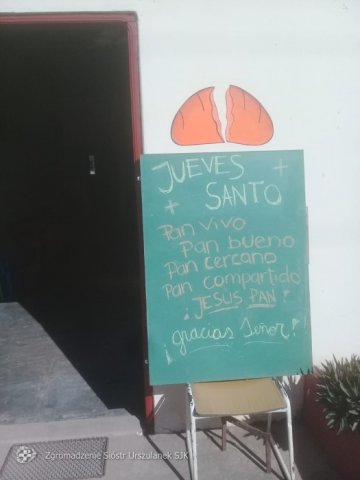 JUEVES +
+ SANTO
Pan vivo
Pan bueno
Pan cercano
Pan compartido
¡JESÚS PAN!
¡gracias Señor!
Zgromadzenie Sióstr Urszulanek SJK